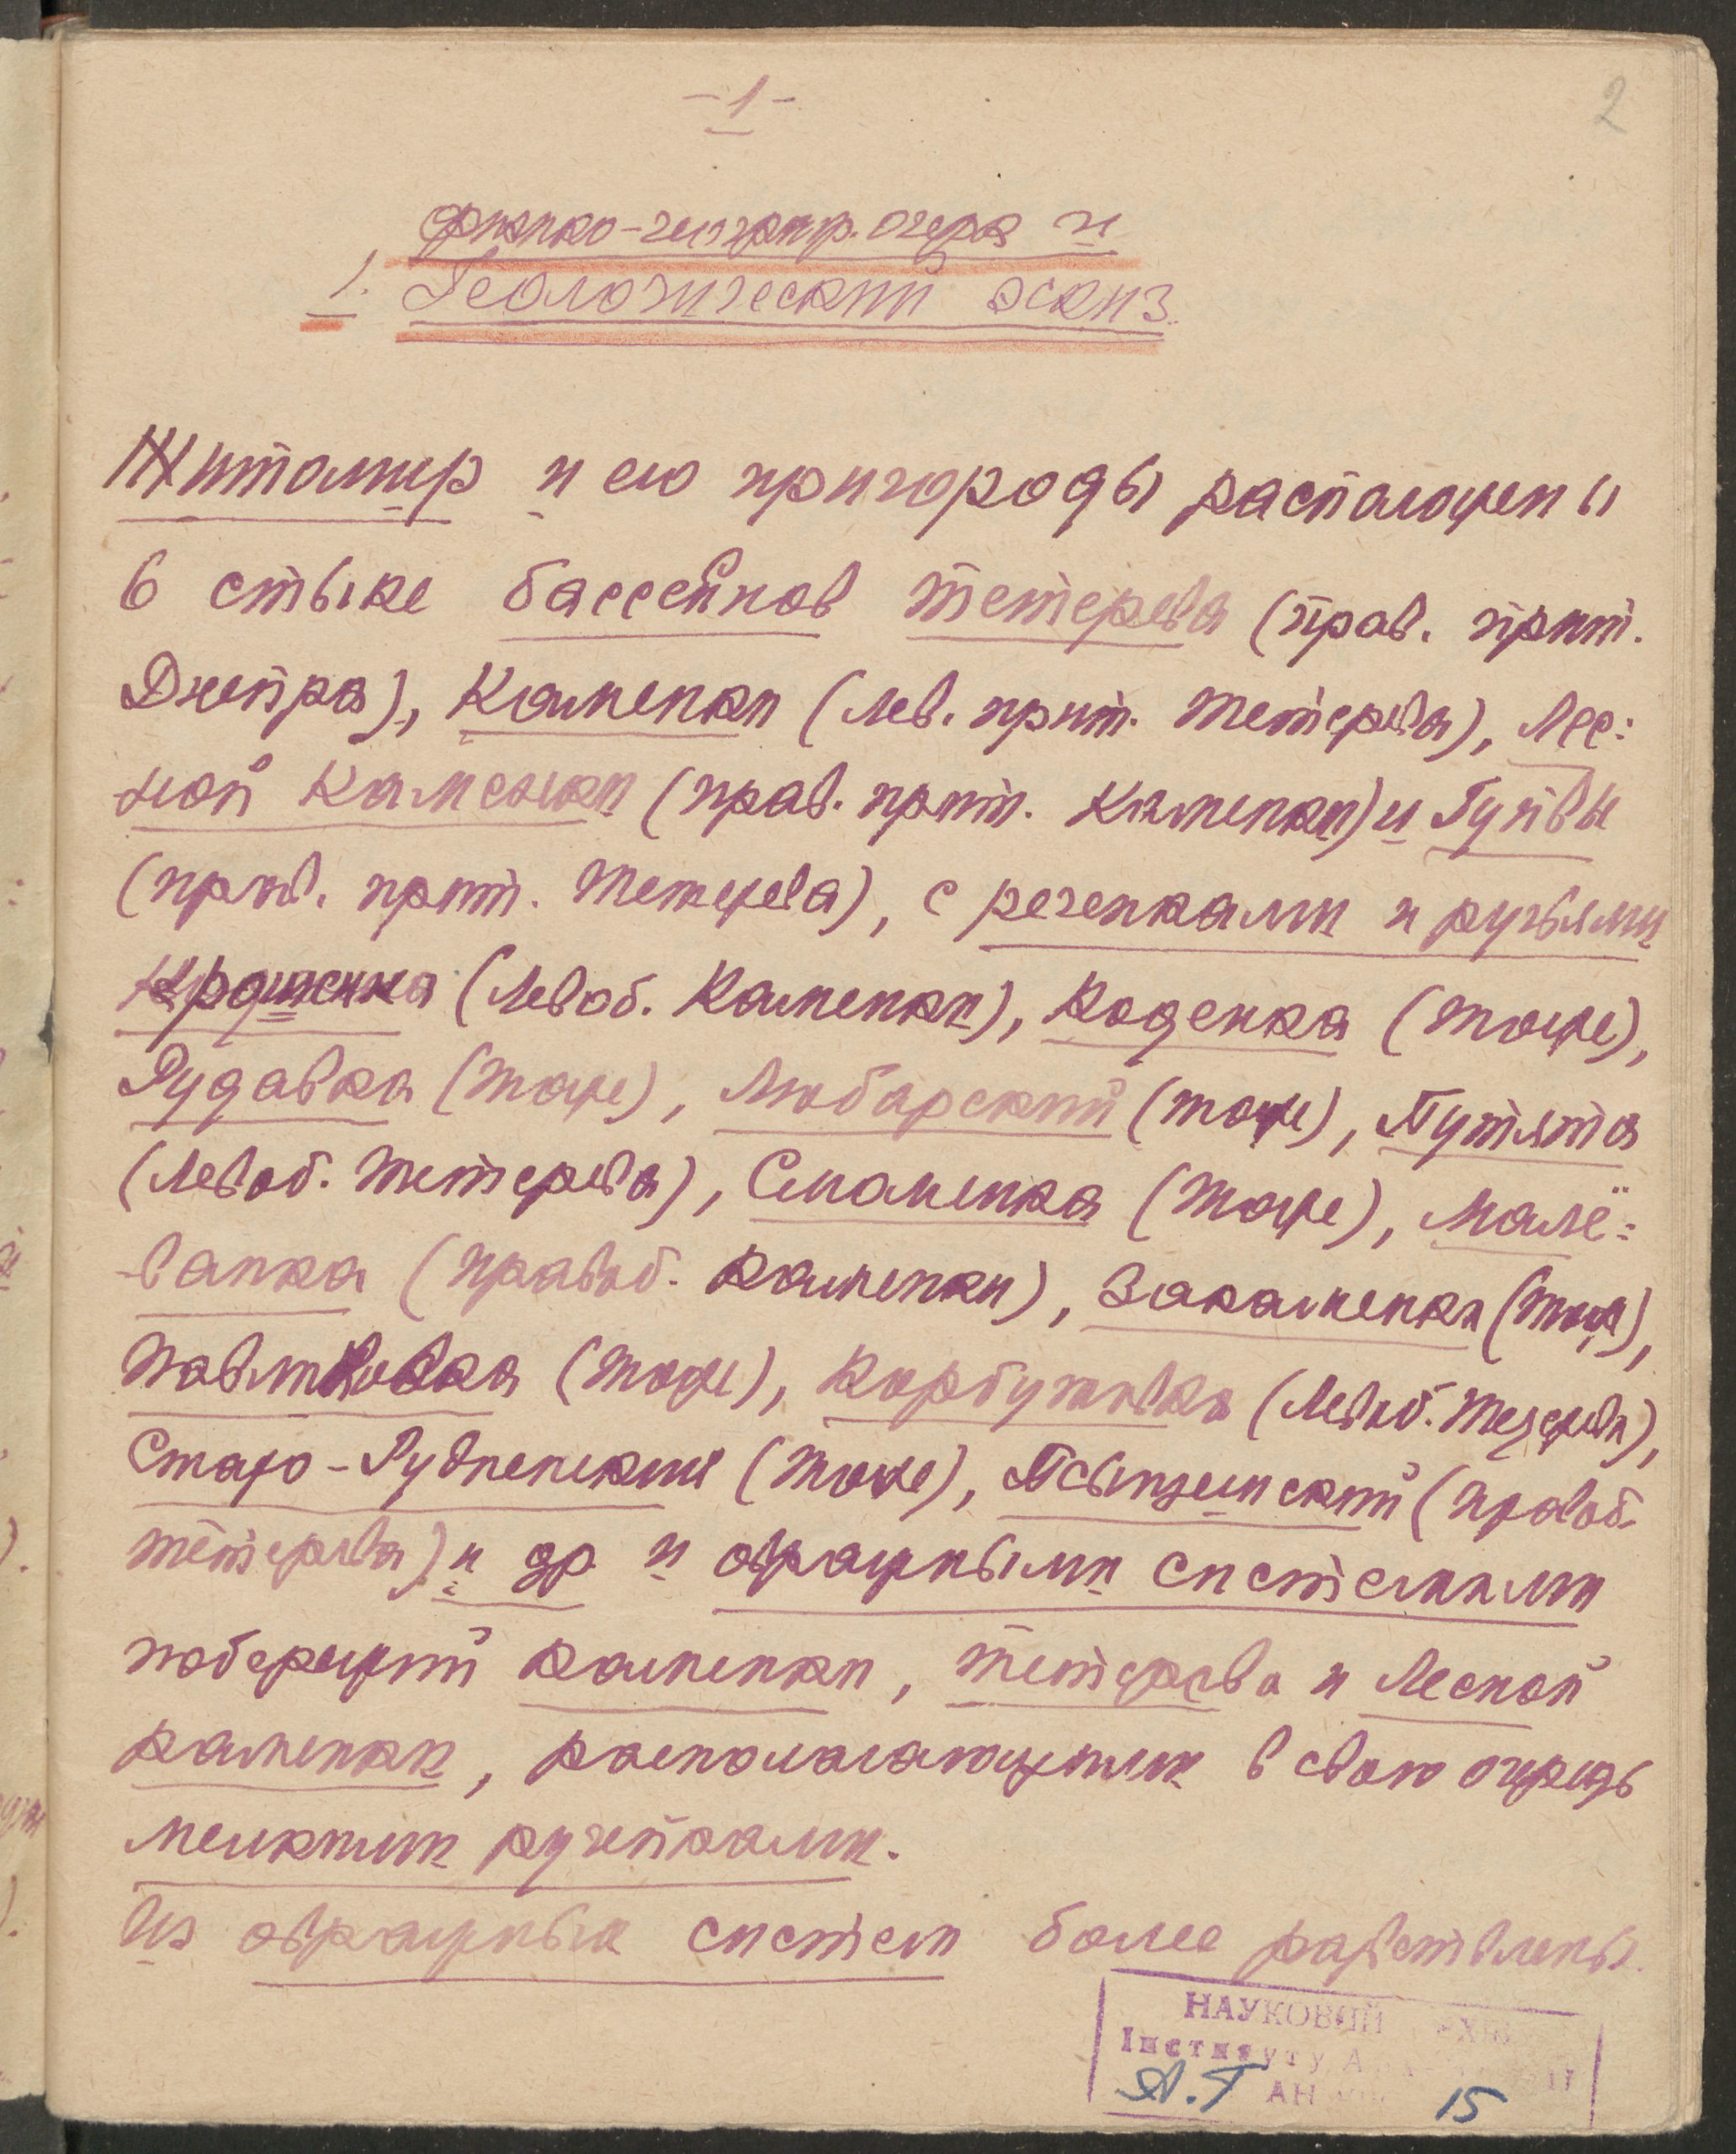 -1-
2
физико-географ. очерк и
1. Геологический эскиз.
Житомир и его пригороды расположены
в стыке бассейнов Тетерева (прав. прит.
Днепра), Каменки (лев. прит. Тетерева), Лес-
ной Каменки (прав. прит. Каменки) и Гуйвы
(прав. прит. Тетерева), с реченками и ручьями
Крошенка (левоб. Каменки), Коденка (тоже),
Рудавка (тоже), Любарский (тоже), Путята
(левоб. Тетерева), Смоленка (тоже), Малё-
ванка (правоб. Каменки), Закаменка (тоже),
(тоже), Корбутовка (левоб. Тетерева),
Старо-Рудненский (тоже), (правоб.
Тетерева) и др и овражными системами
побережий Каменки, Тетерева и Лесной
Каменки, располагающими в свою очередь
мелкими ручейками.
Из овражных систем более разветвлены
НАУКОВИЙ АРХІВ
Інституту
АН
А.Г 15